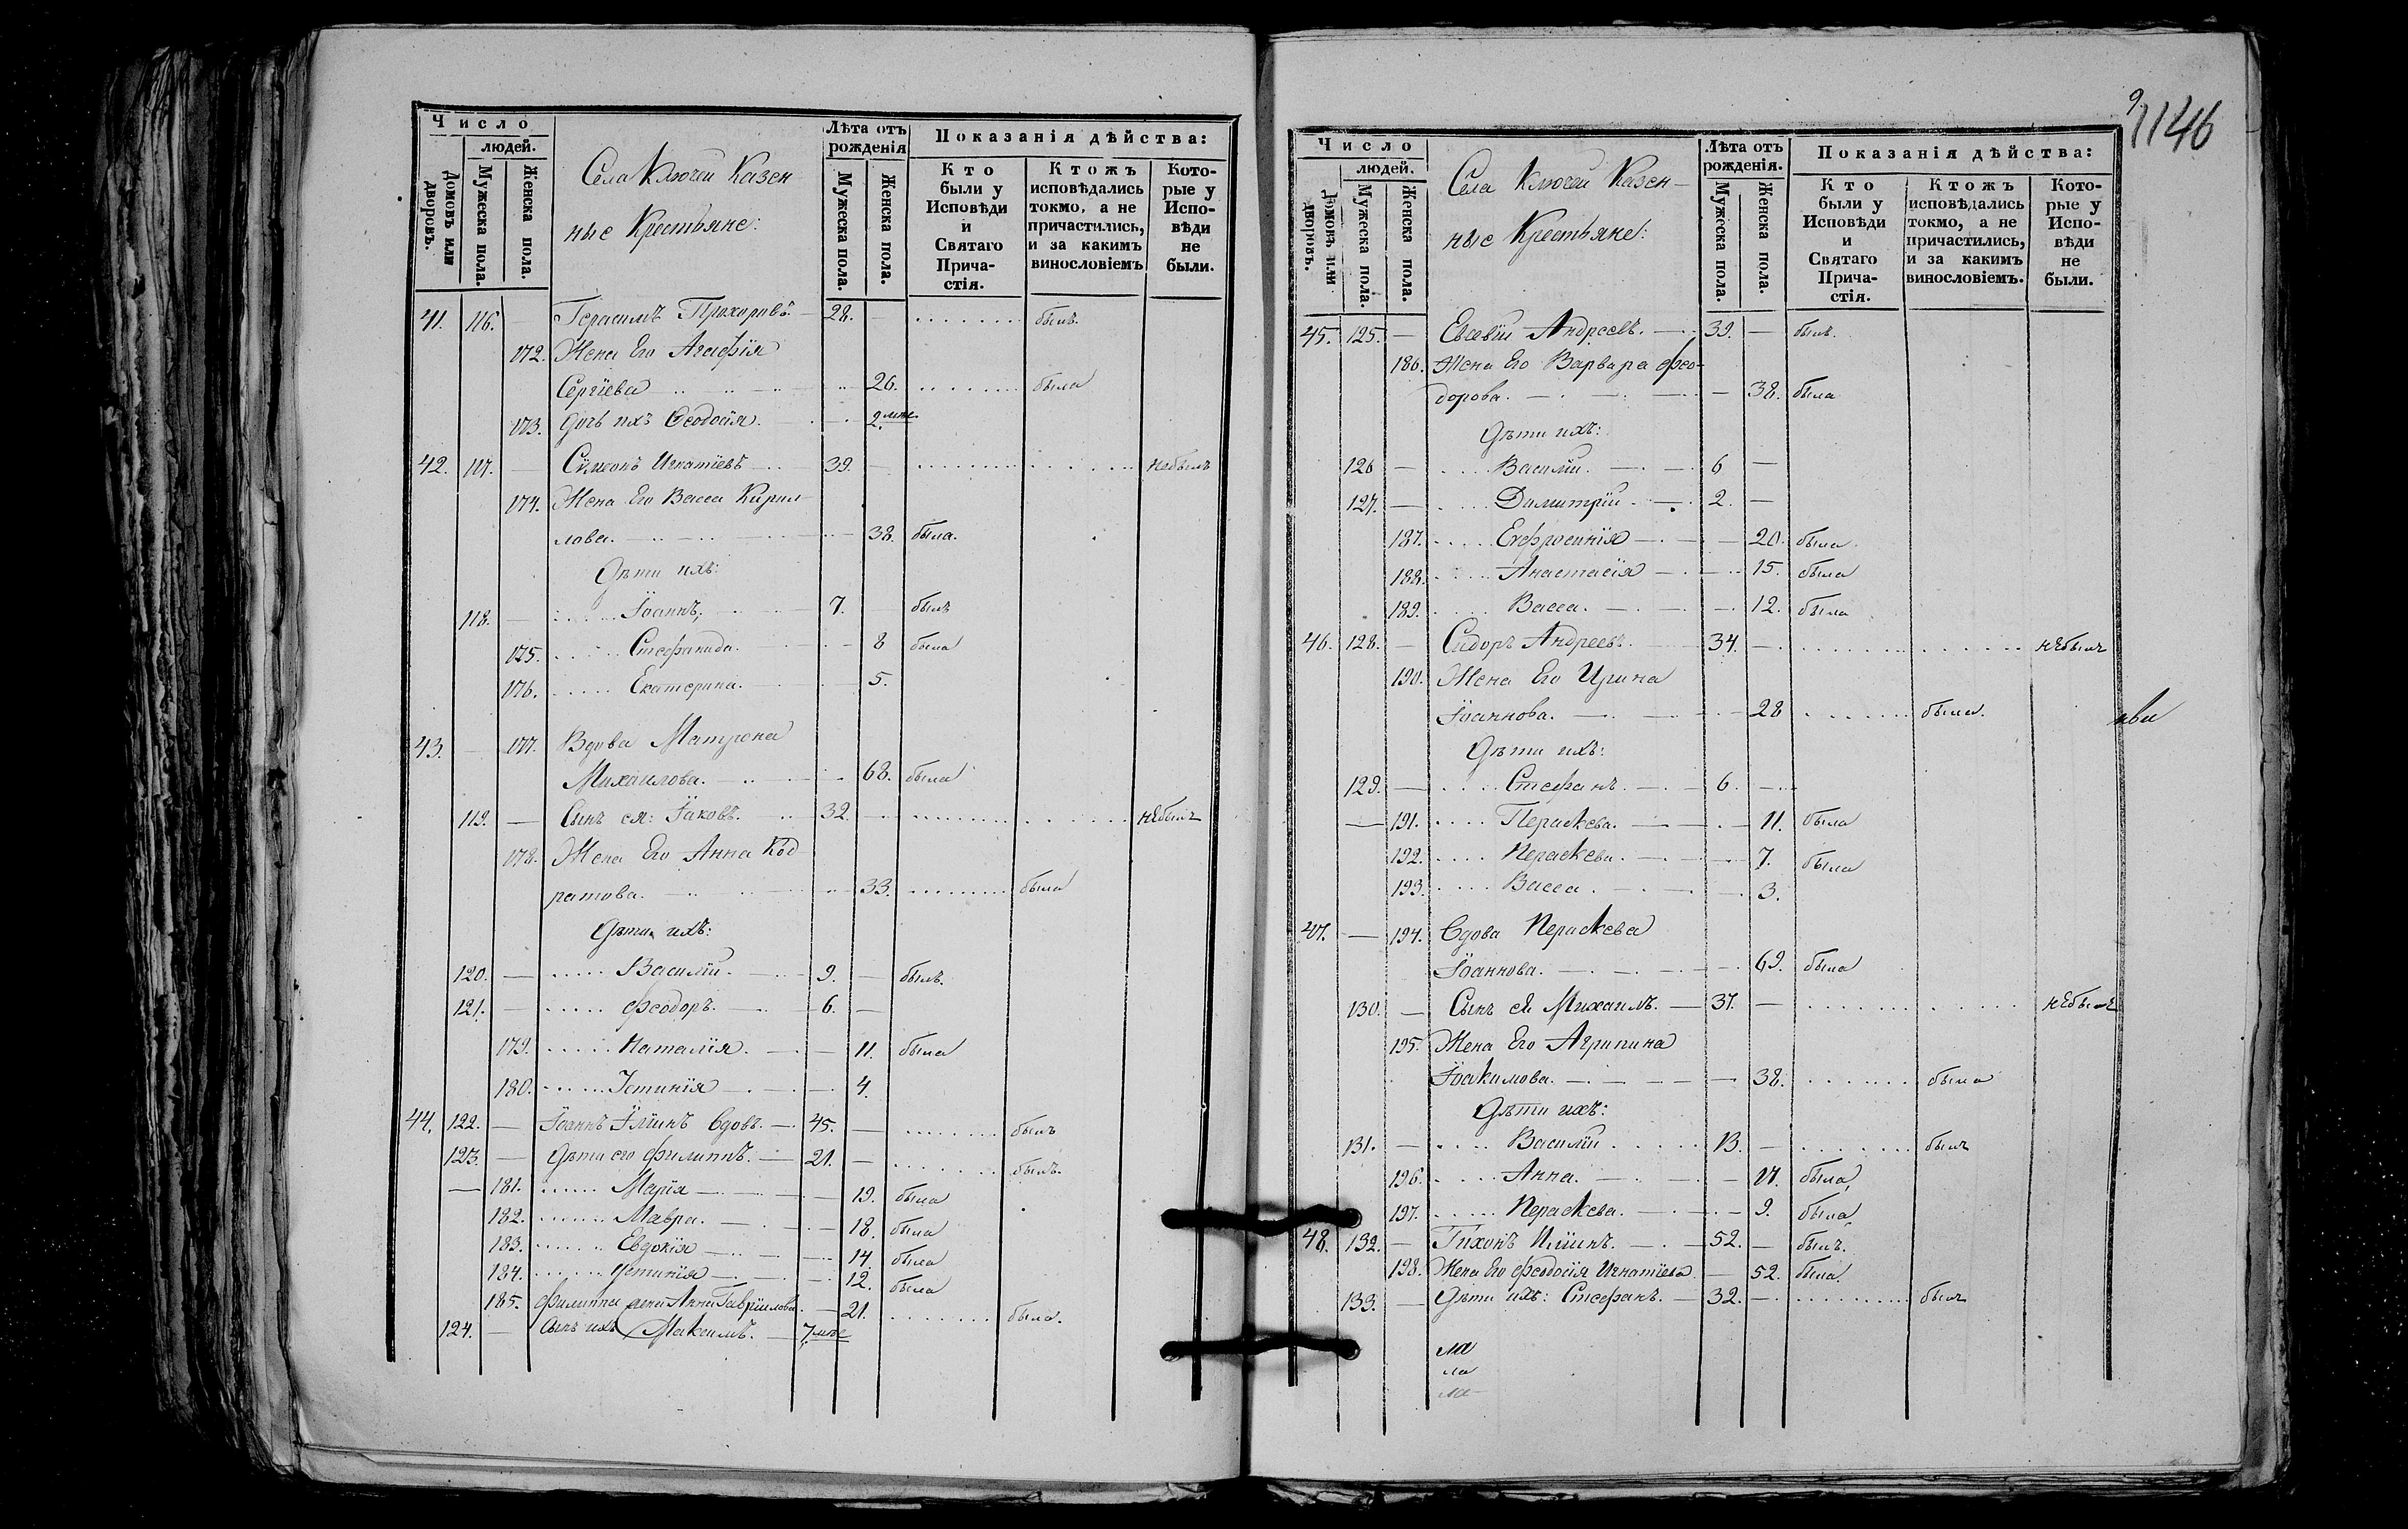 Число
людей.
Домовъ или дворовъ.
Мужеска пола.
Женска пола.
Села Ключей Казен-
ные Крестьяне:
Лѣта отъ рожденія
Мужеска пола.
Женска пола.
Показанія дѣйства:
Кто были у Исповѣди и Святаго Прича-стія.
Ктожъ исповѣдались токмо, а не причастились, и за какимъ винословіемъ
Кото-рые у Испо-вѣди не были.
41. 116. — Герасимъ Прохоровъ. 28. былъ.
172. Жена Его Агафія
Сергіева 26. была
173. Дочь ихъ Ѳеодосія. 2. мѣс.
42. 117. — Сѵмеонъ Игнатіевъ 39. небылъ
174. Жена Его Васса Кирил-
лова. 38. была.
Дѣти ихъ:
118. — Іоаннъ, 7. — былъ
175. Стефанида. 8 была
176. Екатерина. 5.
43. — 177. Вдова Матрона
Михаилова. 68. была
119. — Сынъ ея: Іаковъ. 32. — небылъ
178. Жена Его Анна Код-
ратова. 33. была
Дѣти ихъ:
120. — Василій. 9. — былъ.
121. — Феодоръ. 6. —
179. Наталія. 11. была
180. Іустинія 4.
44. 122. — Іоаннъ Ілїинъ вдовъ. 45. — былъ
123. — Дѣти его Филиппъ. 21. — былъ.
— 181. Марія 19. была
182. Мавра. 18. была
183. Евдокія 14. была
184. Устинія 12. была
185. Филиппа жена Анна Гавріилова. 21. была.
124. — Сынъ ихъ Максимъ. 7 мѣс
9 1146
Число
людей.
Домовъ или дворовъ.
Мужеска пола.
Женска пола.
Села Ключей Казен-
ные Крестьяне:
Лѣта отъ рожденія.
Мужеска пола.
Женска пола.
Показанія дѣйства:
Кто были у Исповѣди и Святаго Прича-стія.
Ктожъ исповѣдались токмо, а не причастились, и за какимъ винословіемъ.
Кото-рые у Испо-вѣди не были.
45. 125. — Евсевій Андреевъ. 39. — былъ.
186. Жена Его Варвара Фео-
дорова. 38. была
Дѣти ихъ:
126 — Василій. 6 —
127. — Димитрій. 2. —
187. Евфросинія 20. была
188. Анастасія 15. была
189. Васса. 12. была
46. 128. — Сидоръ Андреевъ. 34. — небылъ
190. Жена Его Ирина
Іоаннова. 28 была.
ква
Дѣти ихъ:
129. — Стефанъ. 6. —
— 191. Параскева. 11. была
192. Параскева. 7. была
193. Васса. 3.
47. — 194. Вдова Параскева
Іоаннова. 69. была
130. — Сынъ ея Михаилъ. 37. — небылъ
195. Жена Его Агрипина
Іоакимова. 38. была
Дѣти ихъ:
131. — Василій 13. — былъ
196. Анна. 17. была,
197. Параскева. 9. была,
48. 132. — Тихонъ Илїинъ. 52. — былъ.
198. Жена Его Феодосія Игнатіева. 52. была.
133. — Дѣти ихъ: Стефанъ. 32. — былъ
ла
ла
ла